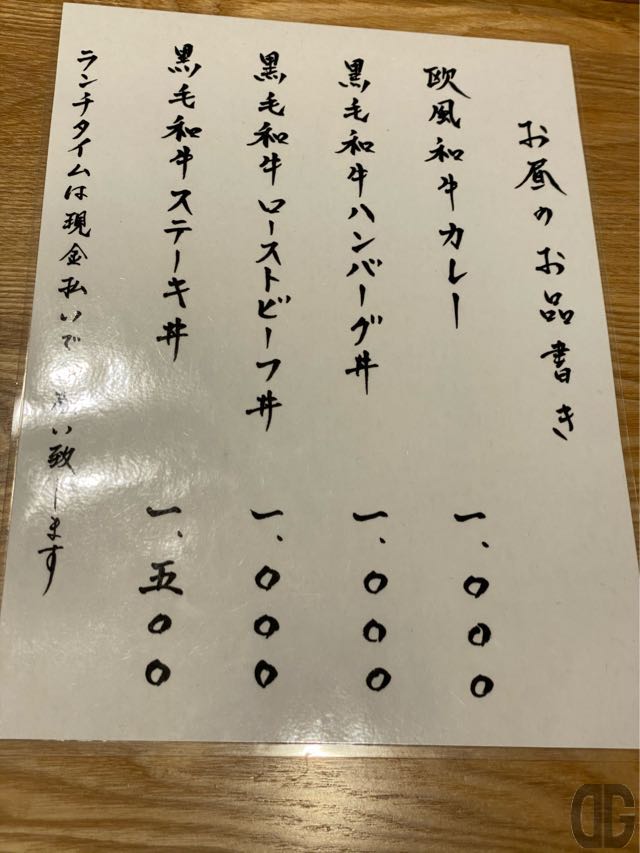 お昼のお品書き
欧風和牛カレー 一、〇〇〇
黒毛和牛ハンバーグ丼 一、〇〇〇
黒毛和牛ローストビーフ丼 一、〇〇〇
黒毛和牛ステーキ丼 一、五〇〇
ランチタイムは現金払いで い致します
DG